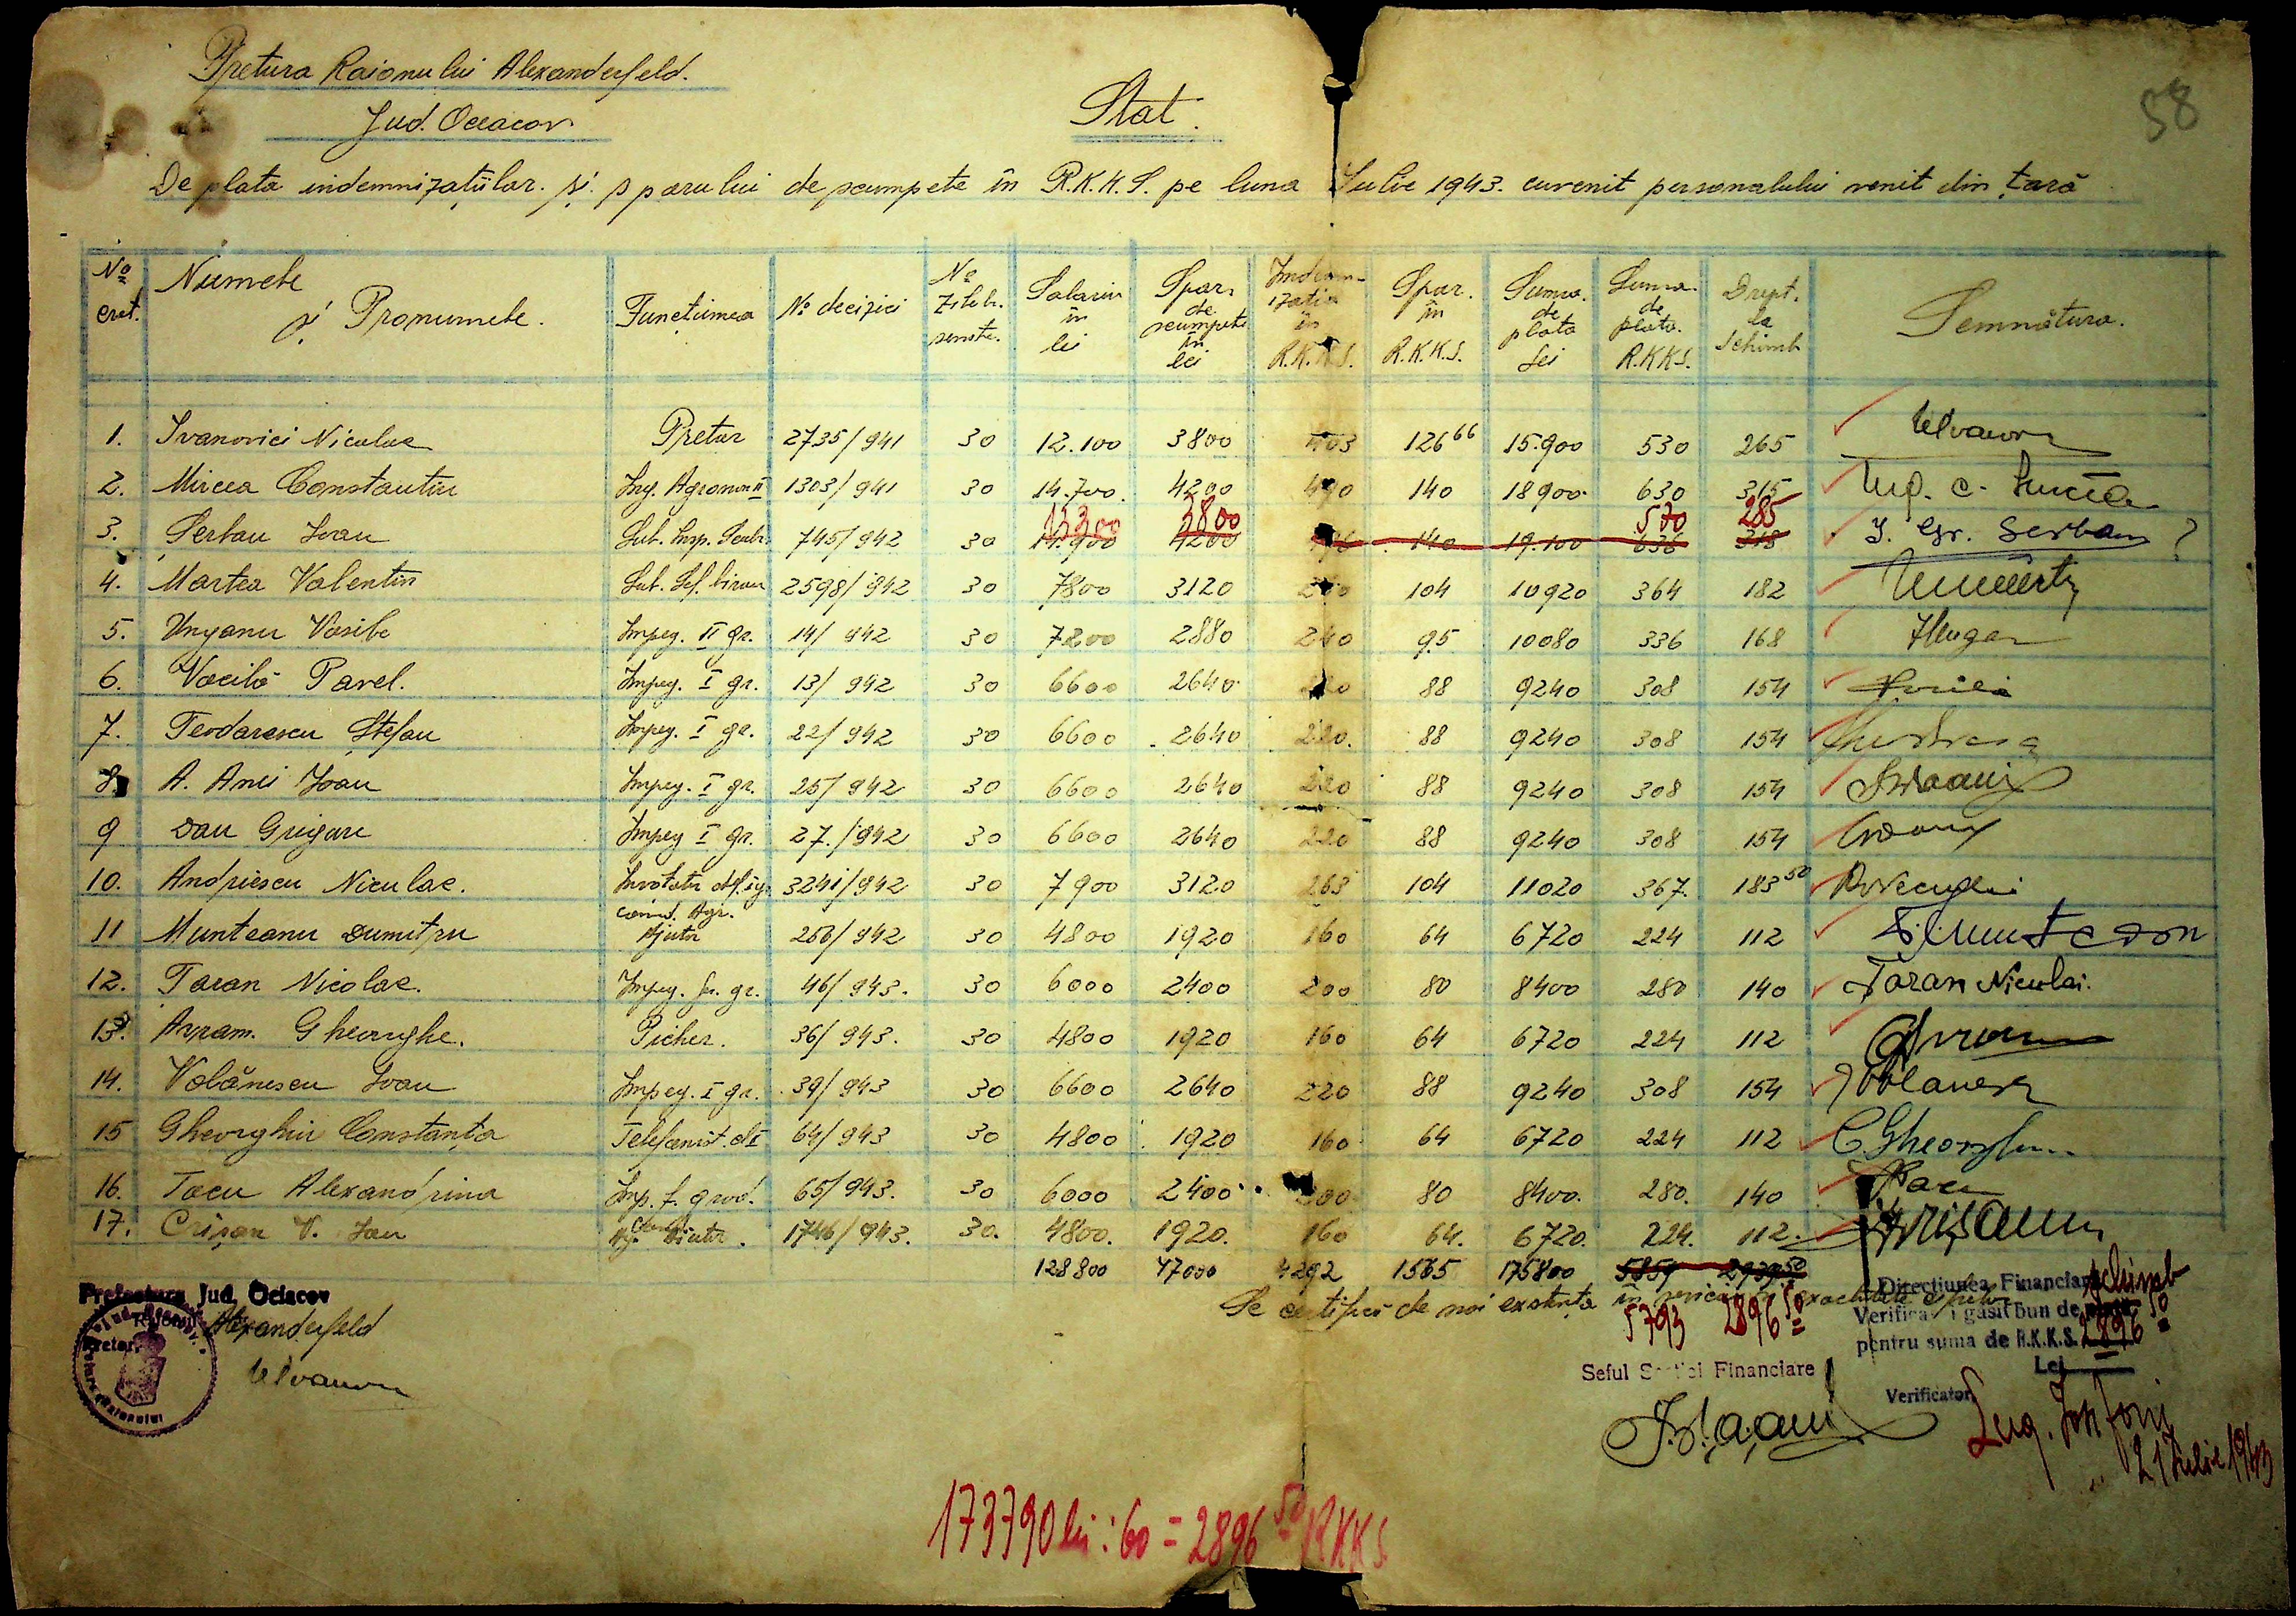 58
Pretura Raionului Alexanderfeld.
Jud. Oceacov
Stat.
De plata indemnizațiilor și sporului de scumpete în R.K.K.S. pe luna Iulie 1943 cuvenit personalului venit din țară
No crt. Numele și Pronumele. Funcțiunea No deciziei No zileh. Salariu în lei Spor de scumpete în lei Indemnizatia în R.K.K.S. Spor în R.K.K.S. Suma de plata Lei Suma de plata R.KKS. Drept la schimb Semnătura.
1. Ivanovici Niculae Pretor 2735/941 30 12.100 3800 403 126 66 15.900 530 265
2. Mircea Constantin Ing. Agronom II 1303/941 30 14.700. 4200 490 140 18900 630 315
15300 3800 570 285
3. Serban Ioan Sub. Insp. 745/942 30 14.900 4200 140 19.100 636 318 I. Gr. Serban ?
4. Martea Valentin Sub. Sef. birou 2598/942 30 7800 3120 104 10920 364 182
5. Unganu Vasile Impeg. II gr. 14/942 30 7200 2880 240 95 10080 336 168
6. Vacilă Pavel. Impeg. I gr. 13/942 30 6600 2640 220 88 9240 308 154
7. Teodorescu Ștefan Impeg. I gr. 22/942 30 6600 2640 220. 88 9240 308 154
8. A. Anei Ioan Impeg. I gr. 25/942 30 6600 2640 220 88 9240 308 154
9 Dan Grigore Impeg I gr. 27./942 30 6600 2640 220 88 9240 308 154
10. Andriescu Niculae. 3241/942 30 7900 3120 263 104 11020 367. 183 50
11 Munteanu Dumitru cond. Agr. Ajutor 256/942 30 4800 1920 160 64 6720 224 112
12. Taran Nicolae. Impeg. gr. 46/943. 30 6000 2400 200 80 8400 280 140 Taran Niculai.
13. Avram. Gheorghe. Picher. 36/943. 30 4800 1920 160 64 6720 224 112
14. Volănescu Ioan Impeg. I gr. 39/943 30 6600 2640 220 88 9240 308 154
15 Gheorghiu Constanța Telefonist. 64/943 30 4800 1920 160 64 6720 224 112 C. Gheorghiu
16. Tacu Alexandrina Imp. f. grad. 65/943. 30 6000 2400 200 80 8400. 280. 140
17. Crișan V. Ion 1746/943. 30. 4800. 1920. 160 64. 6720. 224. 112.
128800 47000 4292 1565 175800 5859 2939 50
Se certifică de noi existența în serviciu și exactitate
5793 2896 50
Prefectura Jud. Ociacov
Raionul Alexanderfeld
Pretor,
Seful Secției Financiare
Direcțiunea Financiara
Verificat și găsit bun de schimb
pentru suma de R.K.K.S. 2896 50
Lei
Verificator
21 Iulie 1943
173790 lei : 60 = 2896 50 RKKS